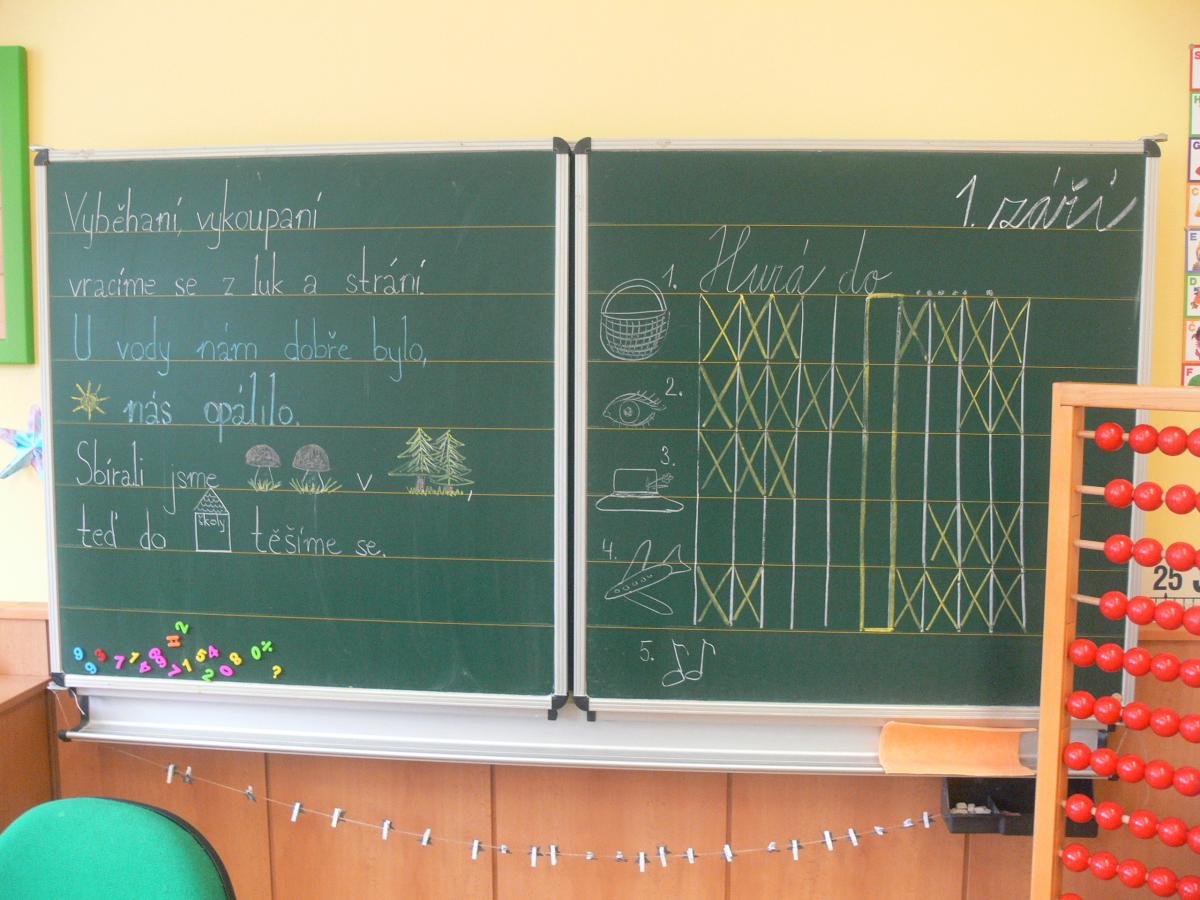 Vyběhaní, vykoupaní
vracíme se z luk a strání.
U vody nám dobře bylo,
nás opálilo.
Sbírali jsme v ,
teď do školy těšíme se.
1. září
Hurá do
1.
2.
3.
4.
5.
25